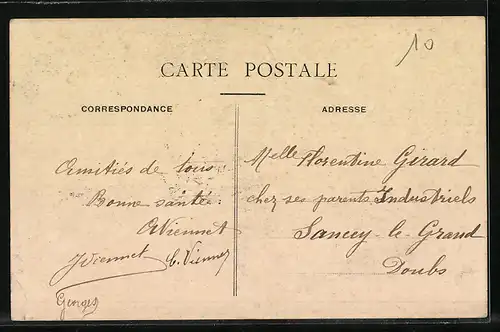 10
CARTE POSTALE
CORRESPONDANCE
Amitiés de tous
Bonne santé.
AViennet
JViennet C. Viennet
Georges
ADRESSE
Melle Florentine Girard
chez ses parents Industriels
Sancey-le-Grand
Doubs